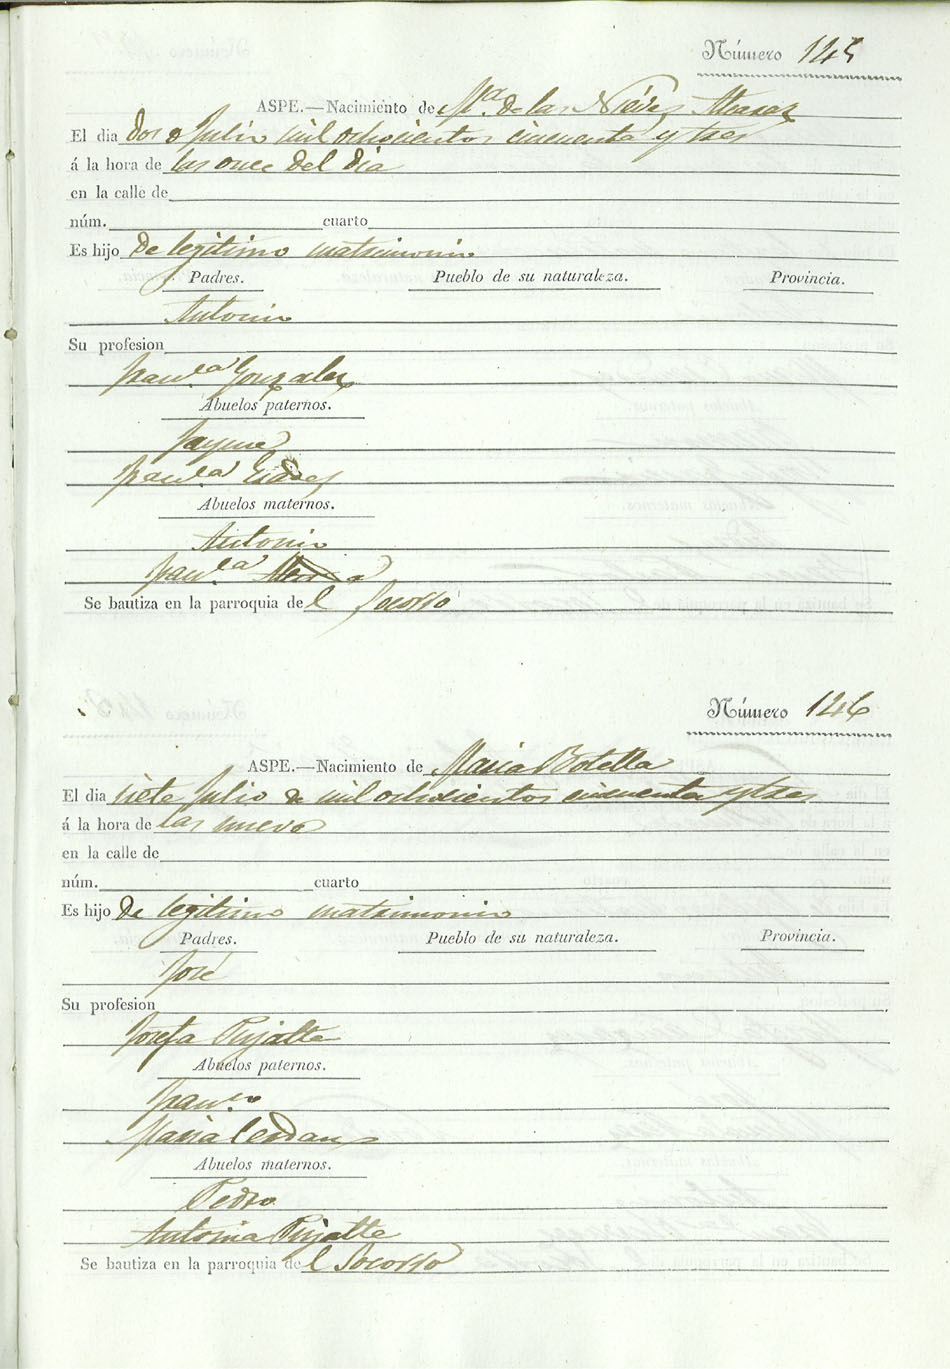 Número 145
ASPE.—Nacimiento de Mª. de las Nieves
El dia dos Julio mil ochocientos cincuenta y tres
á la hora de las once del dia
en la calle de
núm. cuarto
Es hijo de legitimo matrimonio
Padres. Pueblo de su naturaleza. Provincia.
Antonio
Su profesion
Franca Gonzalez
Abuelos paternos.
Jayme
Franca
Abuelos maternos.
Antonio
Franca
Se bautiza en la parroquia del Socorro
Número 146
ASPE.—Nacimiento de Maria Botella
El dia siete Julio de mil ochocientos cincuenta y tres
á la hora de las nueve
en la calle de
núm. cuarto
Es hijo de legitimo matrimonio
Padres. Pueblo de su naturaleza. Provincia.
José
Su profesion
Josefa Pujalte
Abuelos paternos.
Franco
Maria Cerdan
Abuelos maternos.
Pedro
Antonia Pujalte
Se bautiza en la parroquia del Socorro